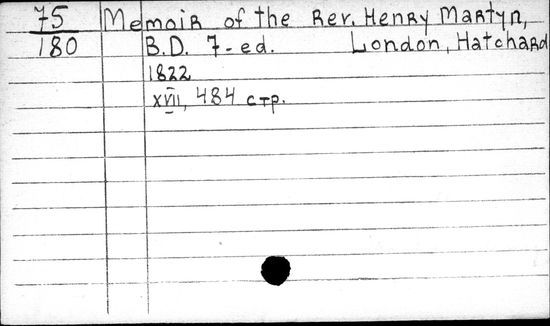 75 Memoir of the Rev. Henry Martyn,
180 B.D. 7-ed. London, Hatchard
1822
XVII, 484 стр.